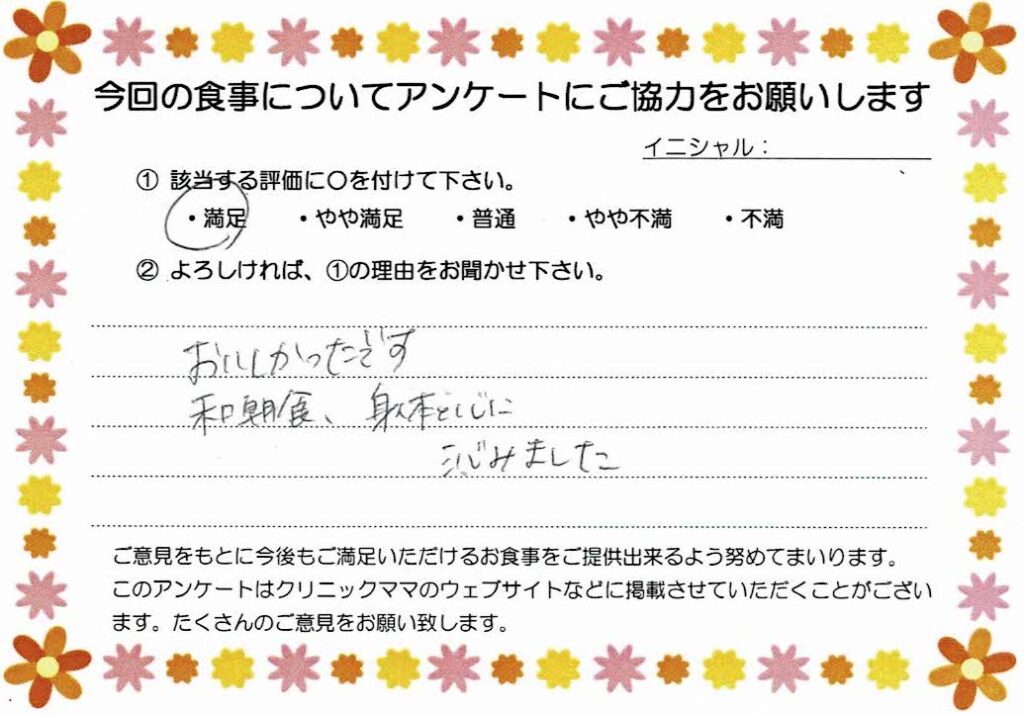 今回の食事についてアンケートにご協力をお願いします
イニシャル：
① 該当する評価に〇を付けて下さい。
・満足 ・やや満足 ・普通 ・やや不満 ・不満
② よろしければ、①の理由をお聞かせ下さい。
おいしかったです
和朝食、身体と心に
沁みました
ご意見をもとに今後もご満足いただけるお食事をご提供出来るよう努めてまいります。
このアンケートはクリニックママのウェブサイトなどに掲載させていただくことがござい
ます。たくさんのご意見をお願い致します。